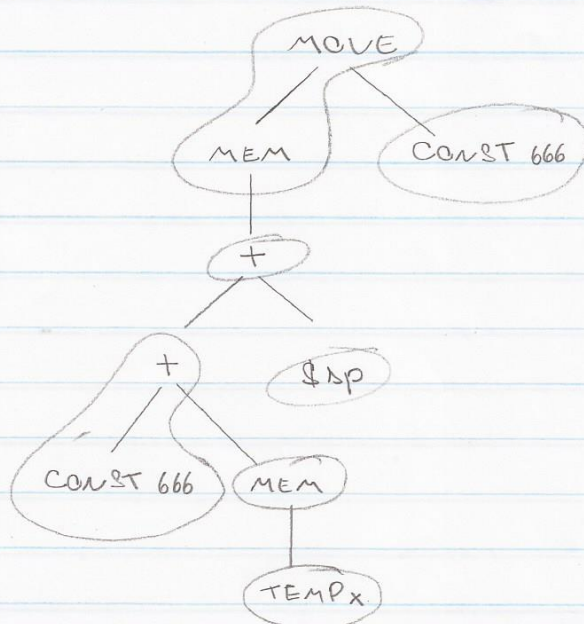 MOVE
MEM CONST 666
+
+ $sp
CONST 666 MEM
TEMP x